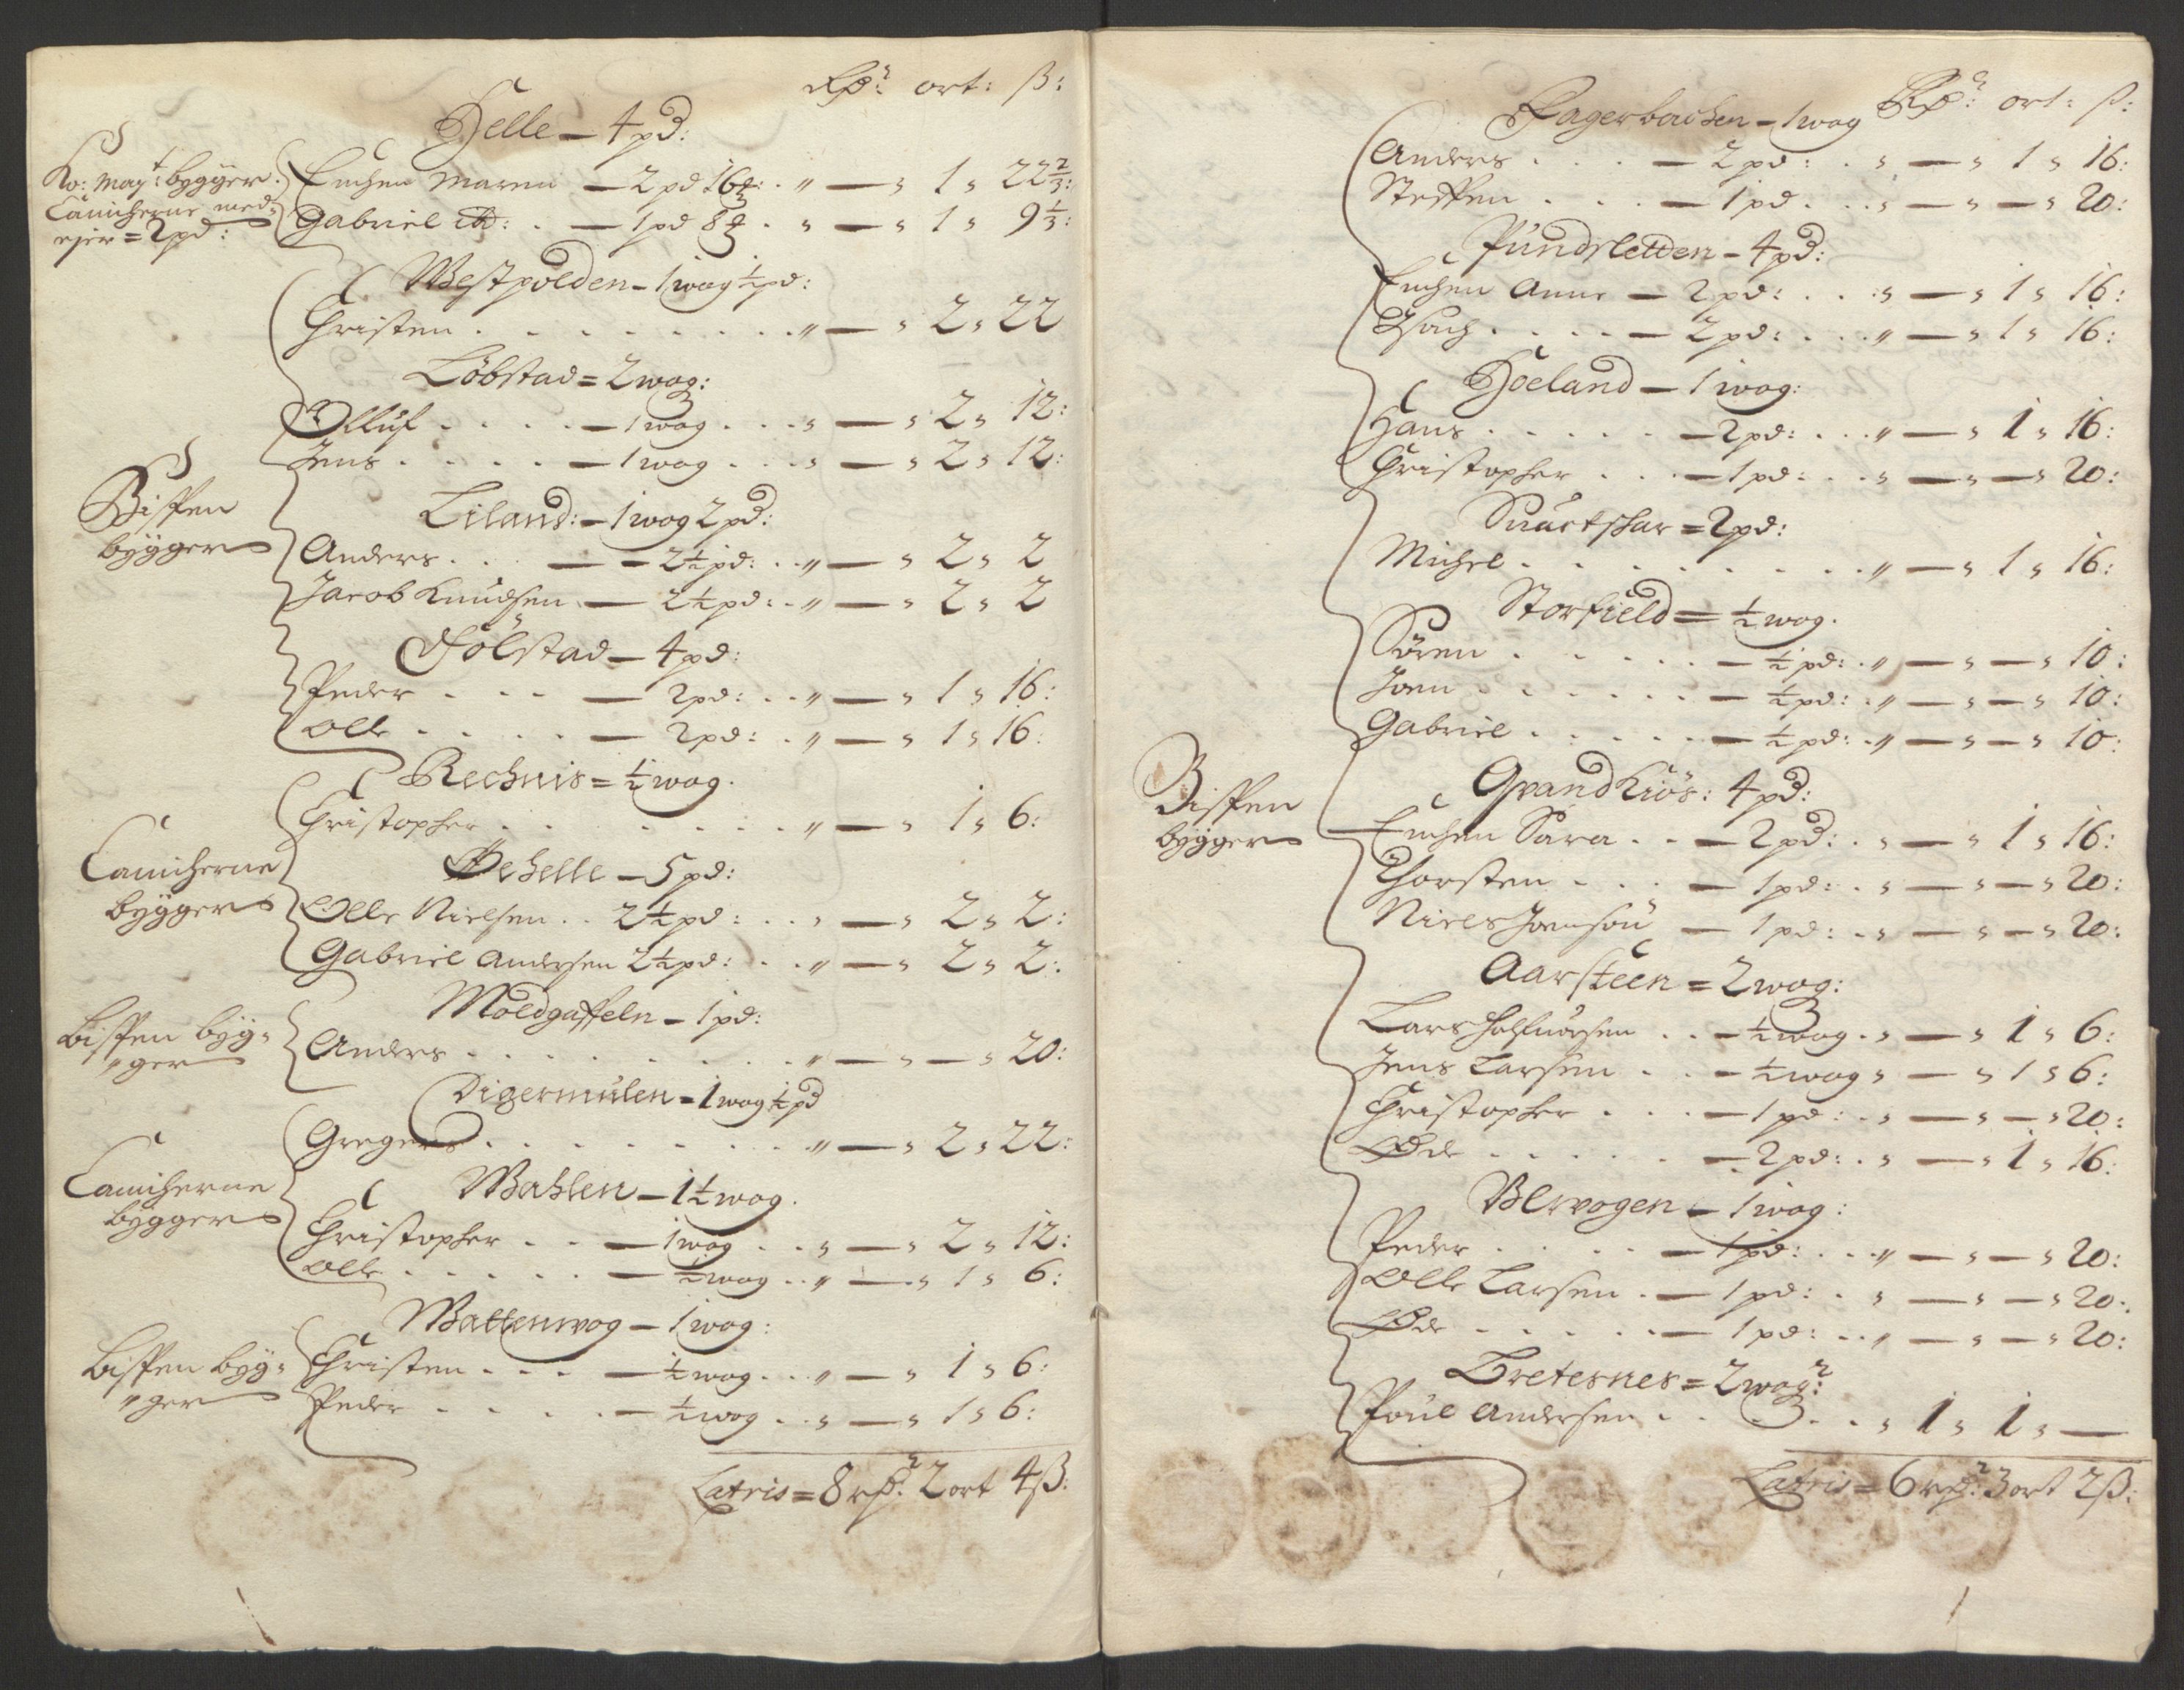 Rdr: ort: ß:
Helle – 4 pd:
Ko: May:t bygger Lauicherne med ejer = 2 pd:
Enchen Maren – 2 pd 16 : . " – " 1 " 22 2/3:
Gabriel ib: . – 1 pd 8 . " – " 1 " 9 1/3:
Westpolden – 1 wog ½ pd:
Christen . . . . . . . . . " – " 2 " 22
Löbstad = 2 wog:
Olluf . . . . – 1 wog . . . " – " 2 " 12:
Jens . . . . – 1 wog . . . " – " 2 " 12:
Bispen bygger
Liland: – 1 wog 2 pd:
Anders . . . – – 2½ pd: . . " – " 2 " 2
Jacob Knudsen – 2½ pd: . " – " 2 " 2
Fölstad – 4 pd:
Peder . . . – 2 pd: . . " – " 1 " 16:
Olle . . . . – 2 pd: . " – " 1 " 16:
Rechnis = ½ wog.
Christopher . . . . . . . . " – " 1 " 6:
Lauicherne bygger
Øehelle – 5 pd:
Olle Nielsen . . 2½ pd: . . " – " 2 " 2:
Gabriel Andersen 2½ pd: . . " – " 2 " 2:
Moldgaffeln – 1 pd:
Bispen byg=
"ger
Anders . . . . . . . . . " – " – " 20:
Digermulen – 1 wog ½ pd
Gregers . . . . . . . . . " – " 2 " 22:
Lauicherne bygger
Wahlen – 1½ wog.
Christopher . . – 1 wog . . " – " 2 " 12:
Olle . . . . . – ½ wog . . " – " 1 " 6:
Wattenwog – 1 wog:
Bispen byg=
"ger
Christen . . . – ½ wog . . . " – " 1 " 6:
Peder . . . . – ½ wog . . " – " 1 " 6:
Latris = 8 rdr: 2 ort 4 ß:
Rdr: ort: ß:
Fagerbachen – 1 wog
Anders . . . – 2 pd: . " – " 1 " 16:
Steffen . . . – 1 pd . . . " – " – " 20:
Pundsletten – 4 pd:
Enchen Anne – 2 pd: . . " – " 1 " 16:
Isach . . . . – 2 pd: . . . " – " 1 " 16:
Hoeland – 1 wog:
Hans . . . . . – 2 pd: . . . " – " 1 " 16:
Christopher . . . – 1 pd: . . " – " – " 20:
Suartskar = 2 pd:
Michel . . . . . . . . . " – " 1 " 16:
Storfield = ½ wog.
Sören . . . . . – ½ pd: . " – " – " 10:
Joen . . . . . . – ½ pd: . " – " – " 10:
Gabriel . . . . . – ½ pd: . " – " – " 10:
Bispen bygger
Grandkiös: 4 pd:
Enchen Sara . . – 2 pd: . " – " 1 " 16:
Thorsten . . . – 1 pd: . " – " – " 20:
Niels Joensön – 1 pd: . " – " – " 20:
Aarsteen = 2 wog:
Lars Halfuorsen . . – ½ wog . " – " 1 " 6:
Jens Larsen . . – ½ wog " – " 1 " 6:
Christopher . . . – 1 pd: . " – " – " 20:
Øde . . . . . – 2 pd: . " – " 1 " 16:
Ulvogen – 1 wog:
Peder . . . . – 1 pd: . . . " – " – " 20:
Olle Larsen . – 1 pd: . " – " – " 20:
Øde . . . . . – 1 pd: . . " – " – " 20:
Bretesnes = 2 wog:
Poul Andersen . . . . . " 1 " 1 " –
Latris = 6 rdr: 3 ort 2 ß: